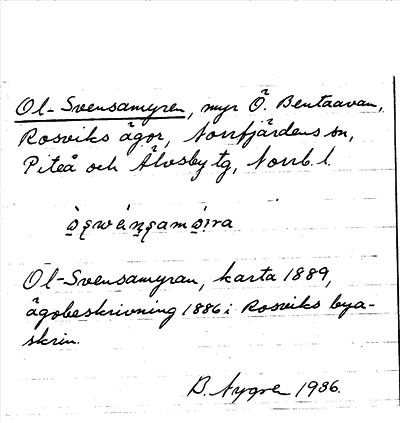 Ol-Svensamyren, myr Ö. Bentaavan,
Rosviks ägor, Norrfjärdens sn,
Piteå och Älvsby tg, Norrb. l.
Ol-Svensamyran, karta 1889,
ägobeskrivning 1886 i Rosviks bya-
skrin.
B. Nygren 1936.